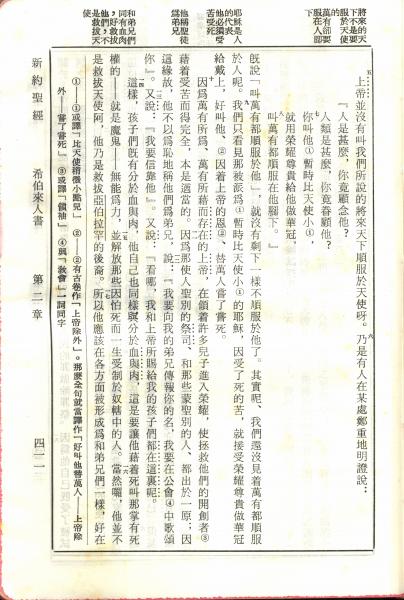 將來的天
下不是要
服於天使
萬有都要
服在人腳
下
耶穌是人
的代表
他必須受
苦受死
他稱聖徒
為弟兄
和弟兄們
同有血肉
，好救拔
他們，不
是救拔天
使
五
上帝並沒有叫我們所說的將來天下順服於天使呀。乃是有人在某處鄭重地明證說：
『人是甚麼，你竟顧念他？
人類是甚麼，你竟眷顧他？
你叫他①暫時比天使小①，
就用榮耀尊貴給他做華冠，
叫萬有都順服在他腳下。』
旣說『叫萬有都順服於他』，就沒有剩下一樣不順服於他了。其實呢、我們還沒見着萬有都順服
於人呢。我們只看見那被派爲①暫時比天使小①的耶穌，因受了死的苦，就接受榮耀尊貴做華冠
給戴上，好叫他、②因着上帝的恩②、替萬人嘗了嘗死。
因爲萬有所爲、萬有所藉而存在的上帝，在領着許多兒子進入榮耀，使拯救他們的開創者③
藉着受苦而得完全，本是適當的。因爲那使人聖別的祭司、和那些蒙聖別的人、都出於一原；因
這緣故，他不以爲恥地稱他們爲弟兄，說：『我要向我的弟兄傳報你的名，我要在公會④中歌頌
你。』又說：『我要信靠他。』又說：『看哪，我和上帝所賜給我的孩子們都在這裏呢。』
這樣，孩子們旣有分於血與肉，他自己也同樣有分於血與肉，這是要讓他藉着死叫那掌有死
權的——就是魔鬼——無能爲力，並解放那些因怕死而一生受制於奴轄中的人。當然囉，他並不
是救拔天使阿，他乃是救拔亞伯拉罕的後裔。所以他應該在各方面被形成爲和弟兄們一樣，好在
①——①或譯『比天使稍微小點兒』 ②——②有古卷作『上帝除外』。那麼全句就當譯作『好叫他替萬人——上帝除
外——嘗了嘗死』 ③或譯『領袖』 ④與『教會』一詞同字
新約聖經 希伯來人書 第二章 四二一